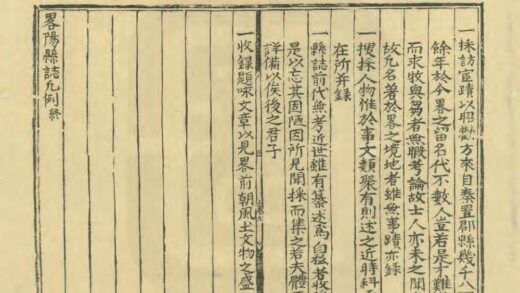 一採訪宦蹟以昭勸方來自秦置郡縣幾千八
餘年於今畧之留名代不數人豈若是才難
而求牧與芻者無職考論故士人亦未之聞
故凡名著於畧之境地者雖無事蹟亦錄
一搜採人物惟於事文類聚有則述之近時科
在所并錄
一縣誌前代無考近世雖有纂述焉自猛者收
是以忘其固陋因所見聞採而集之若夫體
詳備以俟後之君子
一收錄題咏文章以見畧前朝風土文物之盛
畧陽縣誌凡例終